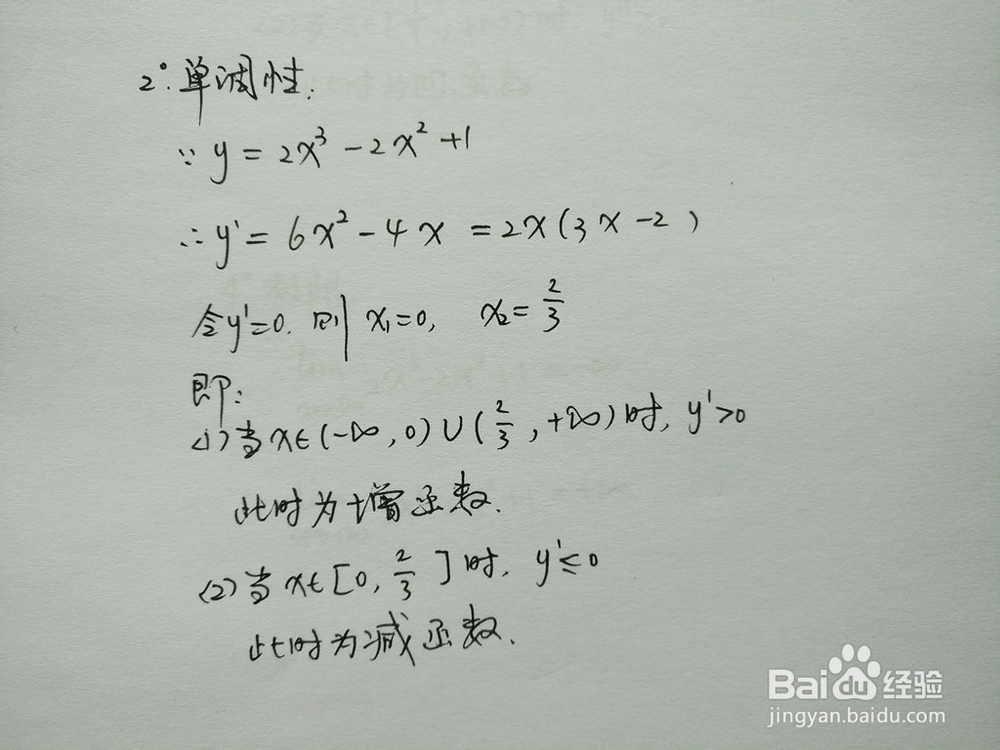 2°.单调性.
∵ y = 2x³ - 2x² + 1
∴ y' = 6x² - 4x = 2x(3x - 2)
令y'=0. 则 x₁=0, x₂= 2/3
即:
(1)当x∈(-∞,0)∪(2/3,+∞)时, y'>0
此时为增函数.
(2)当x∈[0, 2/3]时, y'≤0
此时为减函数.
Baidu经验
jingyan.baidu.com